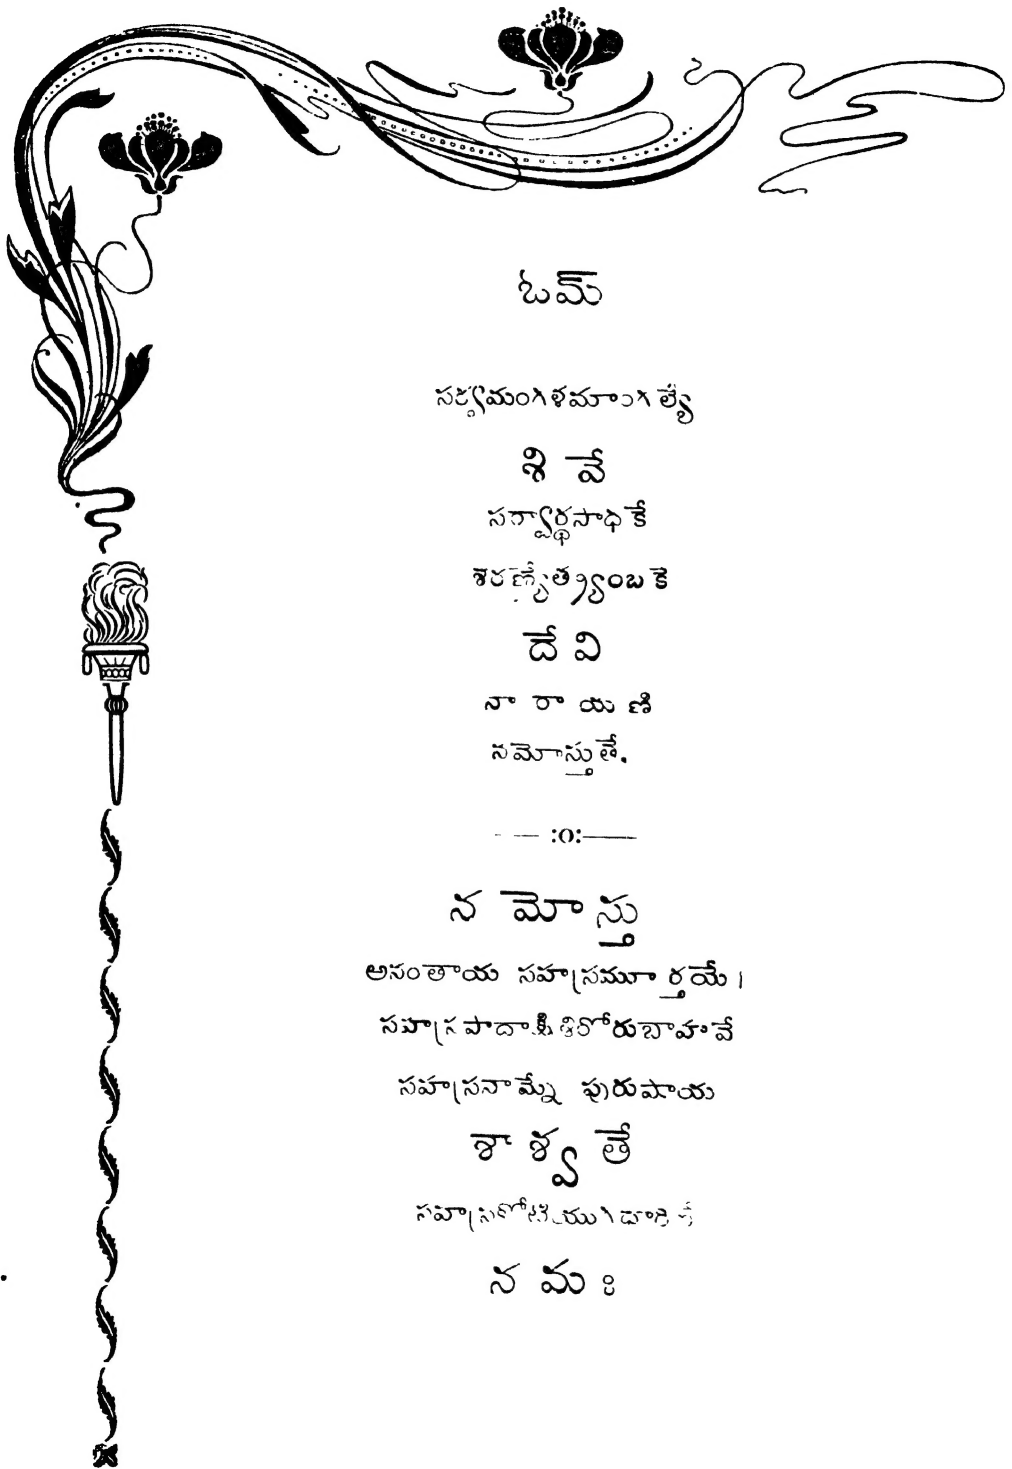 ఓమ్
సర్వమంగళమాంగల్యే
శివే
సర్వార్థసాధికే
శరణ్యేత్ర్యంబకె
దేవి
నారాయణి
నమోస్తుతే.
— — :o:——
నమోస్తు
అనంతాయ సహస్రమూర్తయే।
సహస్రపాదాక్షిశిరోరుబాహవే
సహస్రనామ్నే పురుషాయ
శాశ్వతే
సహస్రకోటియుగధారిణే
నమః